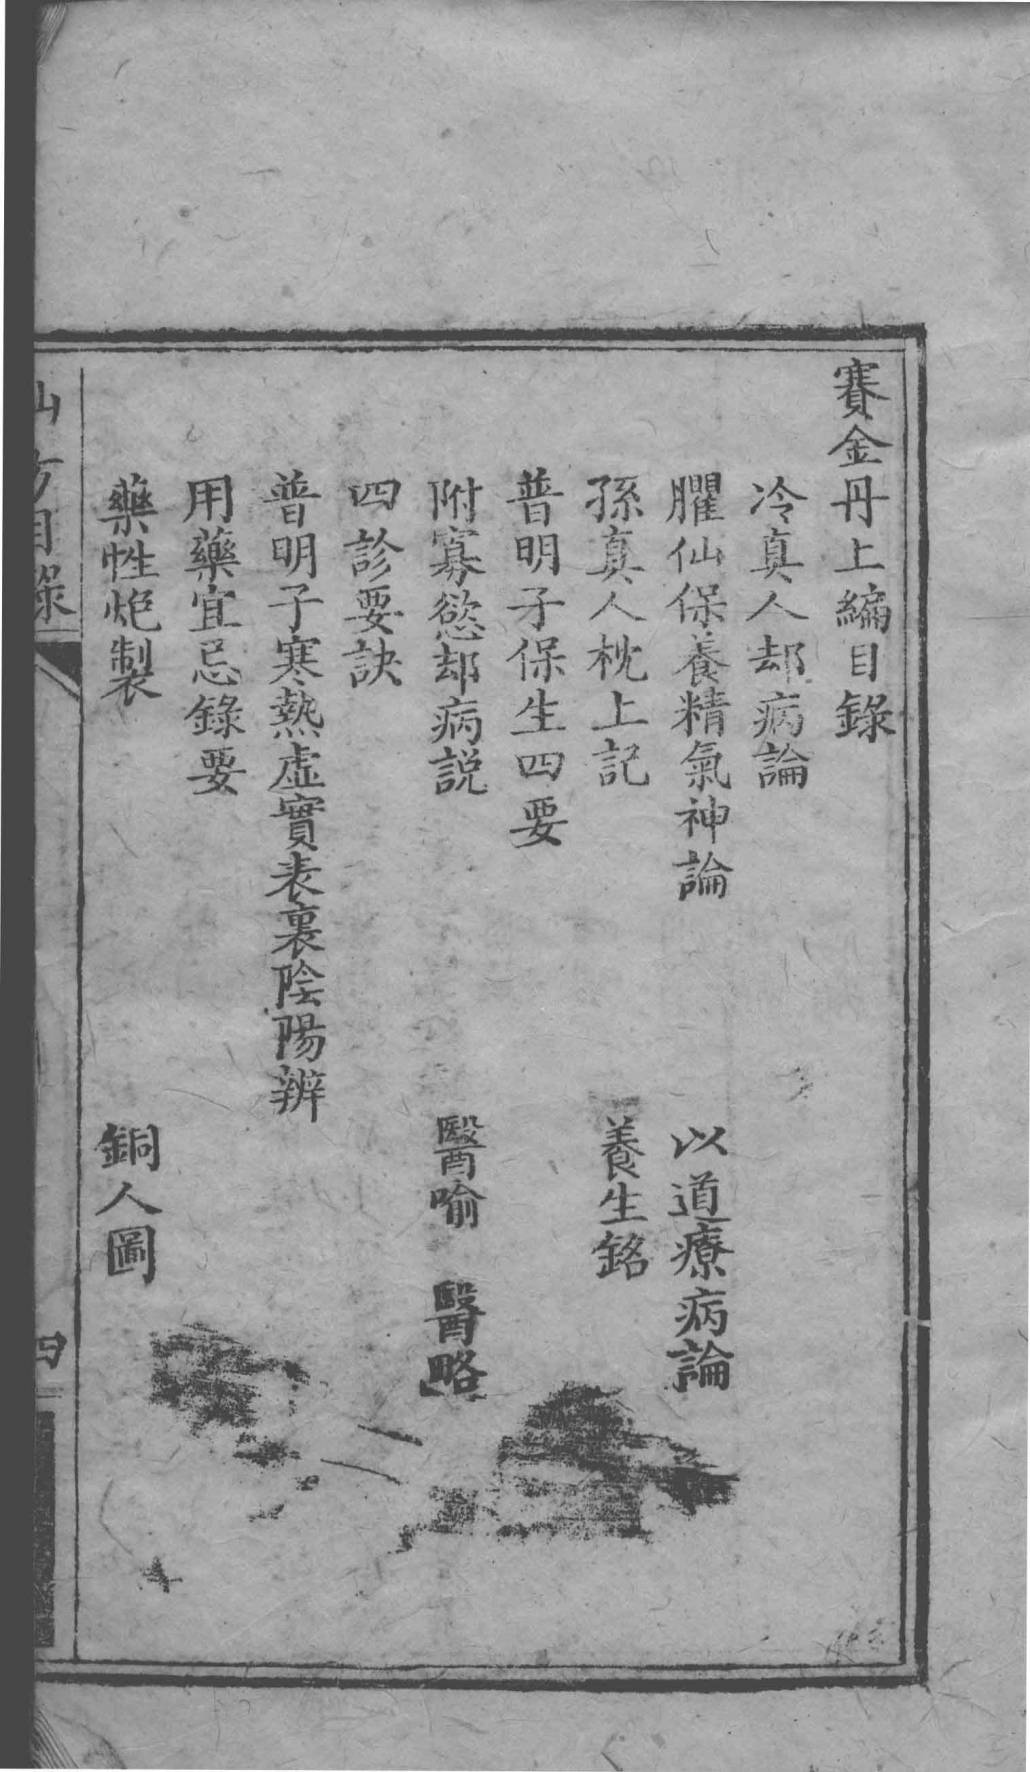 賽金丹上編目錄
冷真人却病論
臞仙保養精氣神論　以道療病論
孫真人枕上記　養生銘
普明子保生四要
附寡慾却病說　醫喻　醫略
四診要訣
普明子寒熱虛實表裏陰陽辨
用藥宜忌錄要
藥性炮製　銅人圖
仙方目錄
四